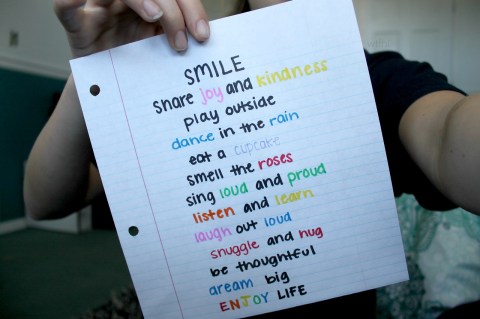 SMILE
share joy and kindness
play outside
dance in the rain
eat a cupcake
smell the roses
sing loud and proud
listen and learn
laugh out loud
snuggle and hug
be thoughtful
dream big
ENJOY LIFE